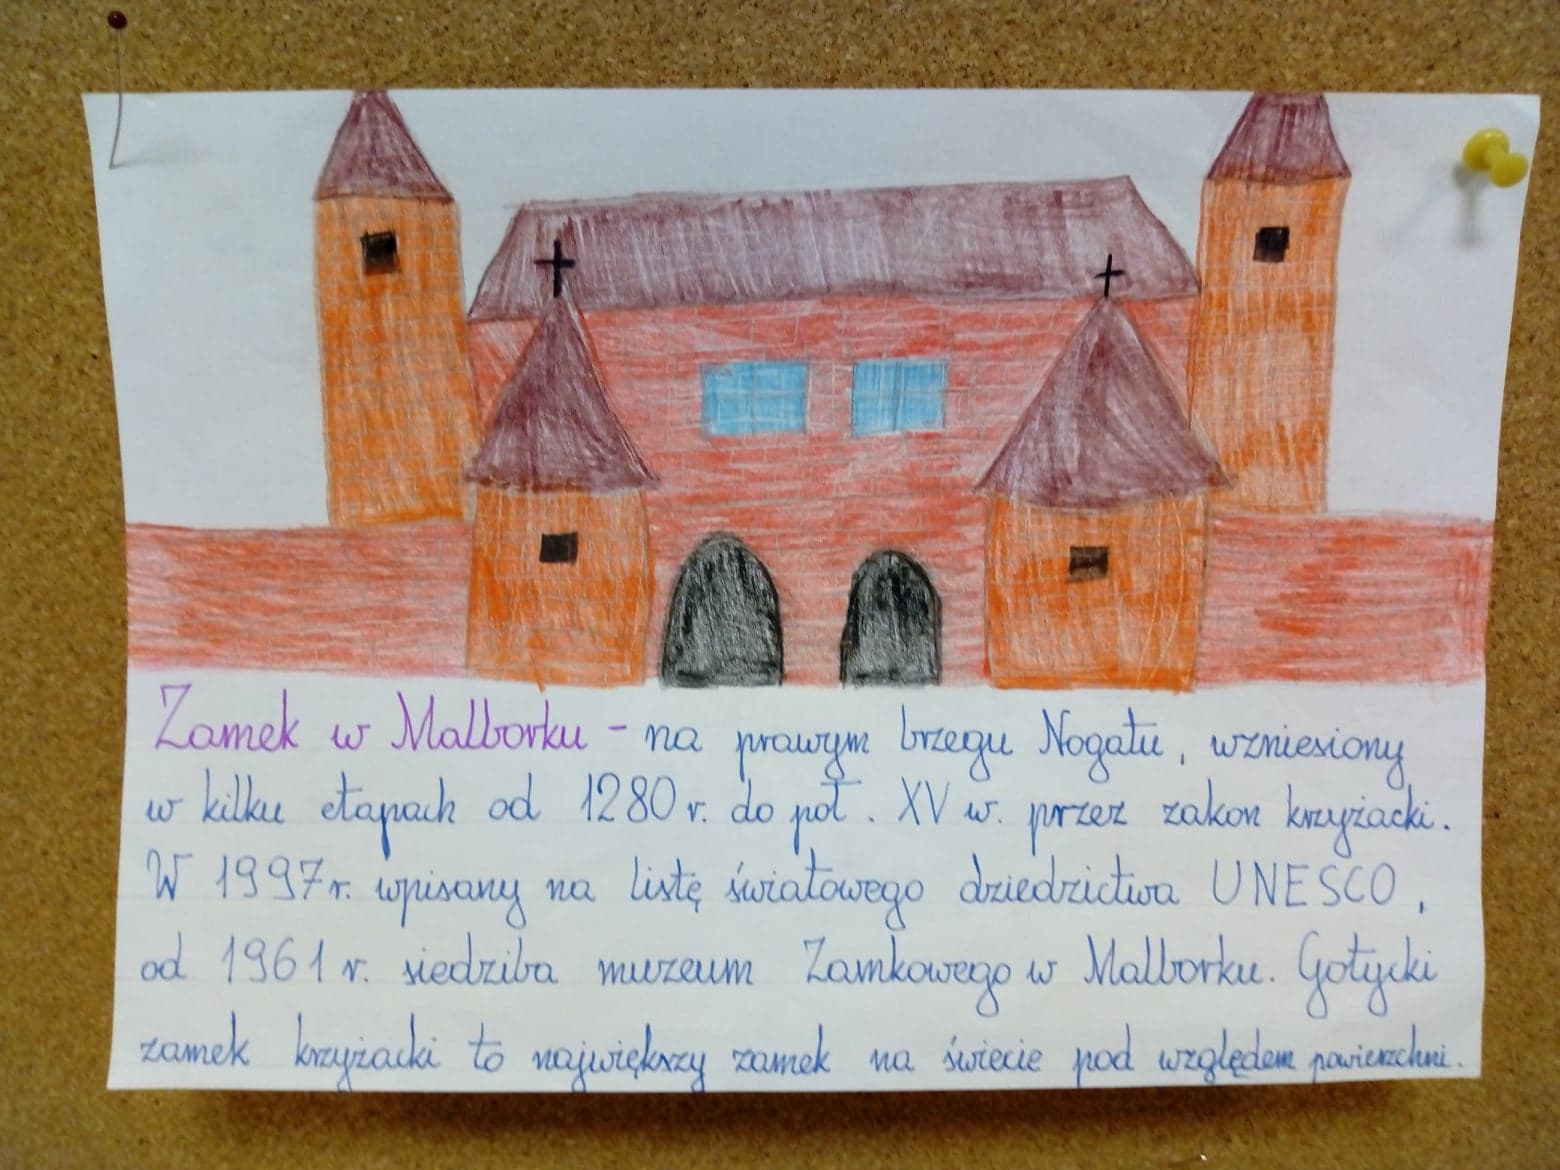 Zamek w Malborku - na prawym brzegu Nogatu, wzniesiony
w kilku etapach od 1280 r. do poł. XV w. przez zakon krzyżacki.
W 1997 r. wpisany na listę światowego dziedzictwa UNESCO,
od 1961 r. siedziba muzeum Zamkowego w Malborku. Gotycki
zamek krzyżacki to największy zamek na świecie pod względem powierzchni.